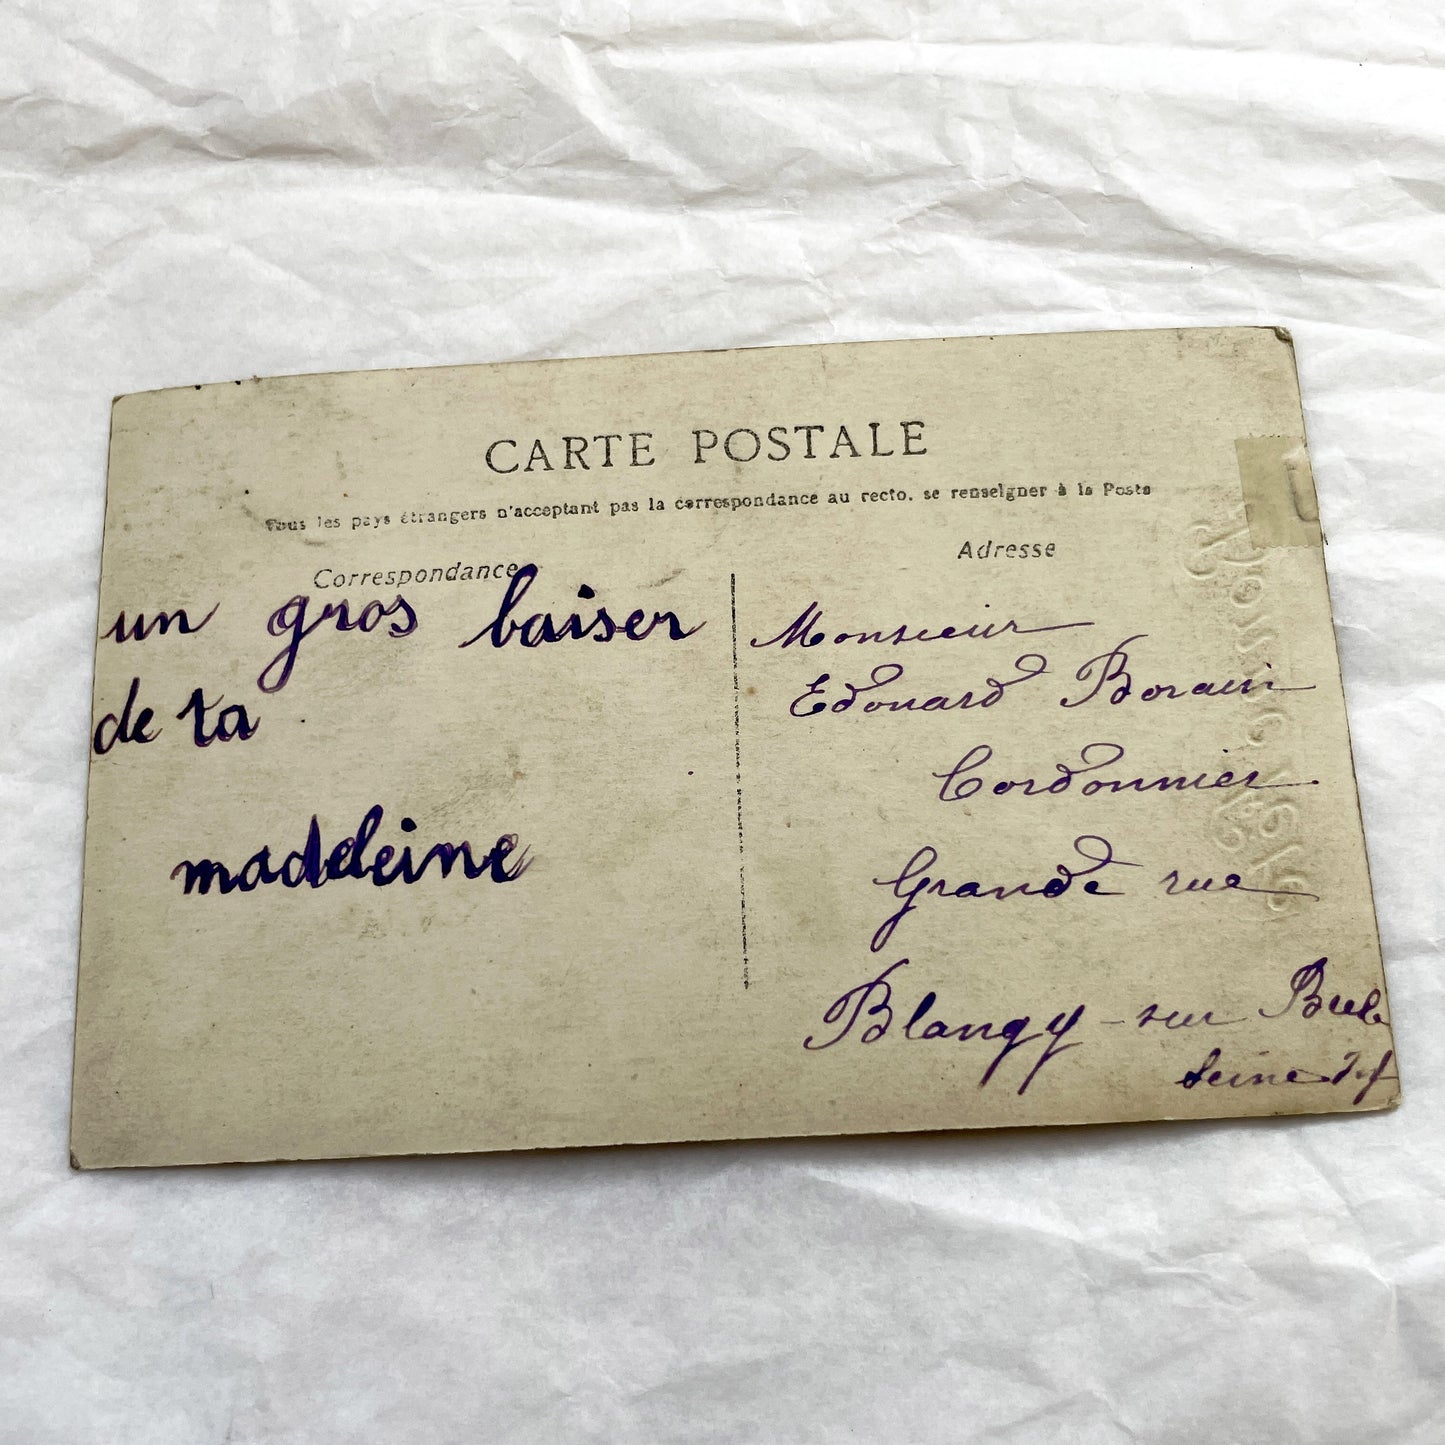 CARTE POSTALE
Tous les pays étrangers n'acceptant pas la correspondance au recto. se renseigner à la Poste
Correspondance
Adresse
un gros baiser
de ta
madeleine
Monsieur
Edouard Borain
Cordonnier
Grande rue
Blangy-sur Bresle
Seine Inf